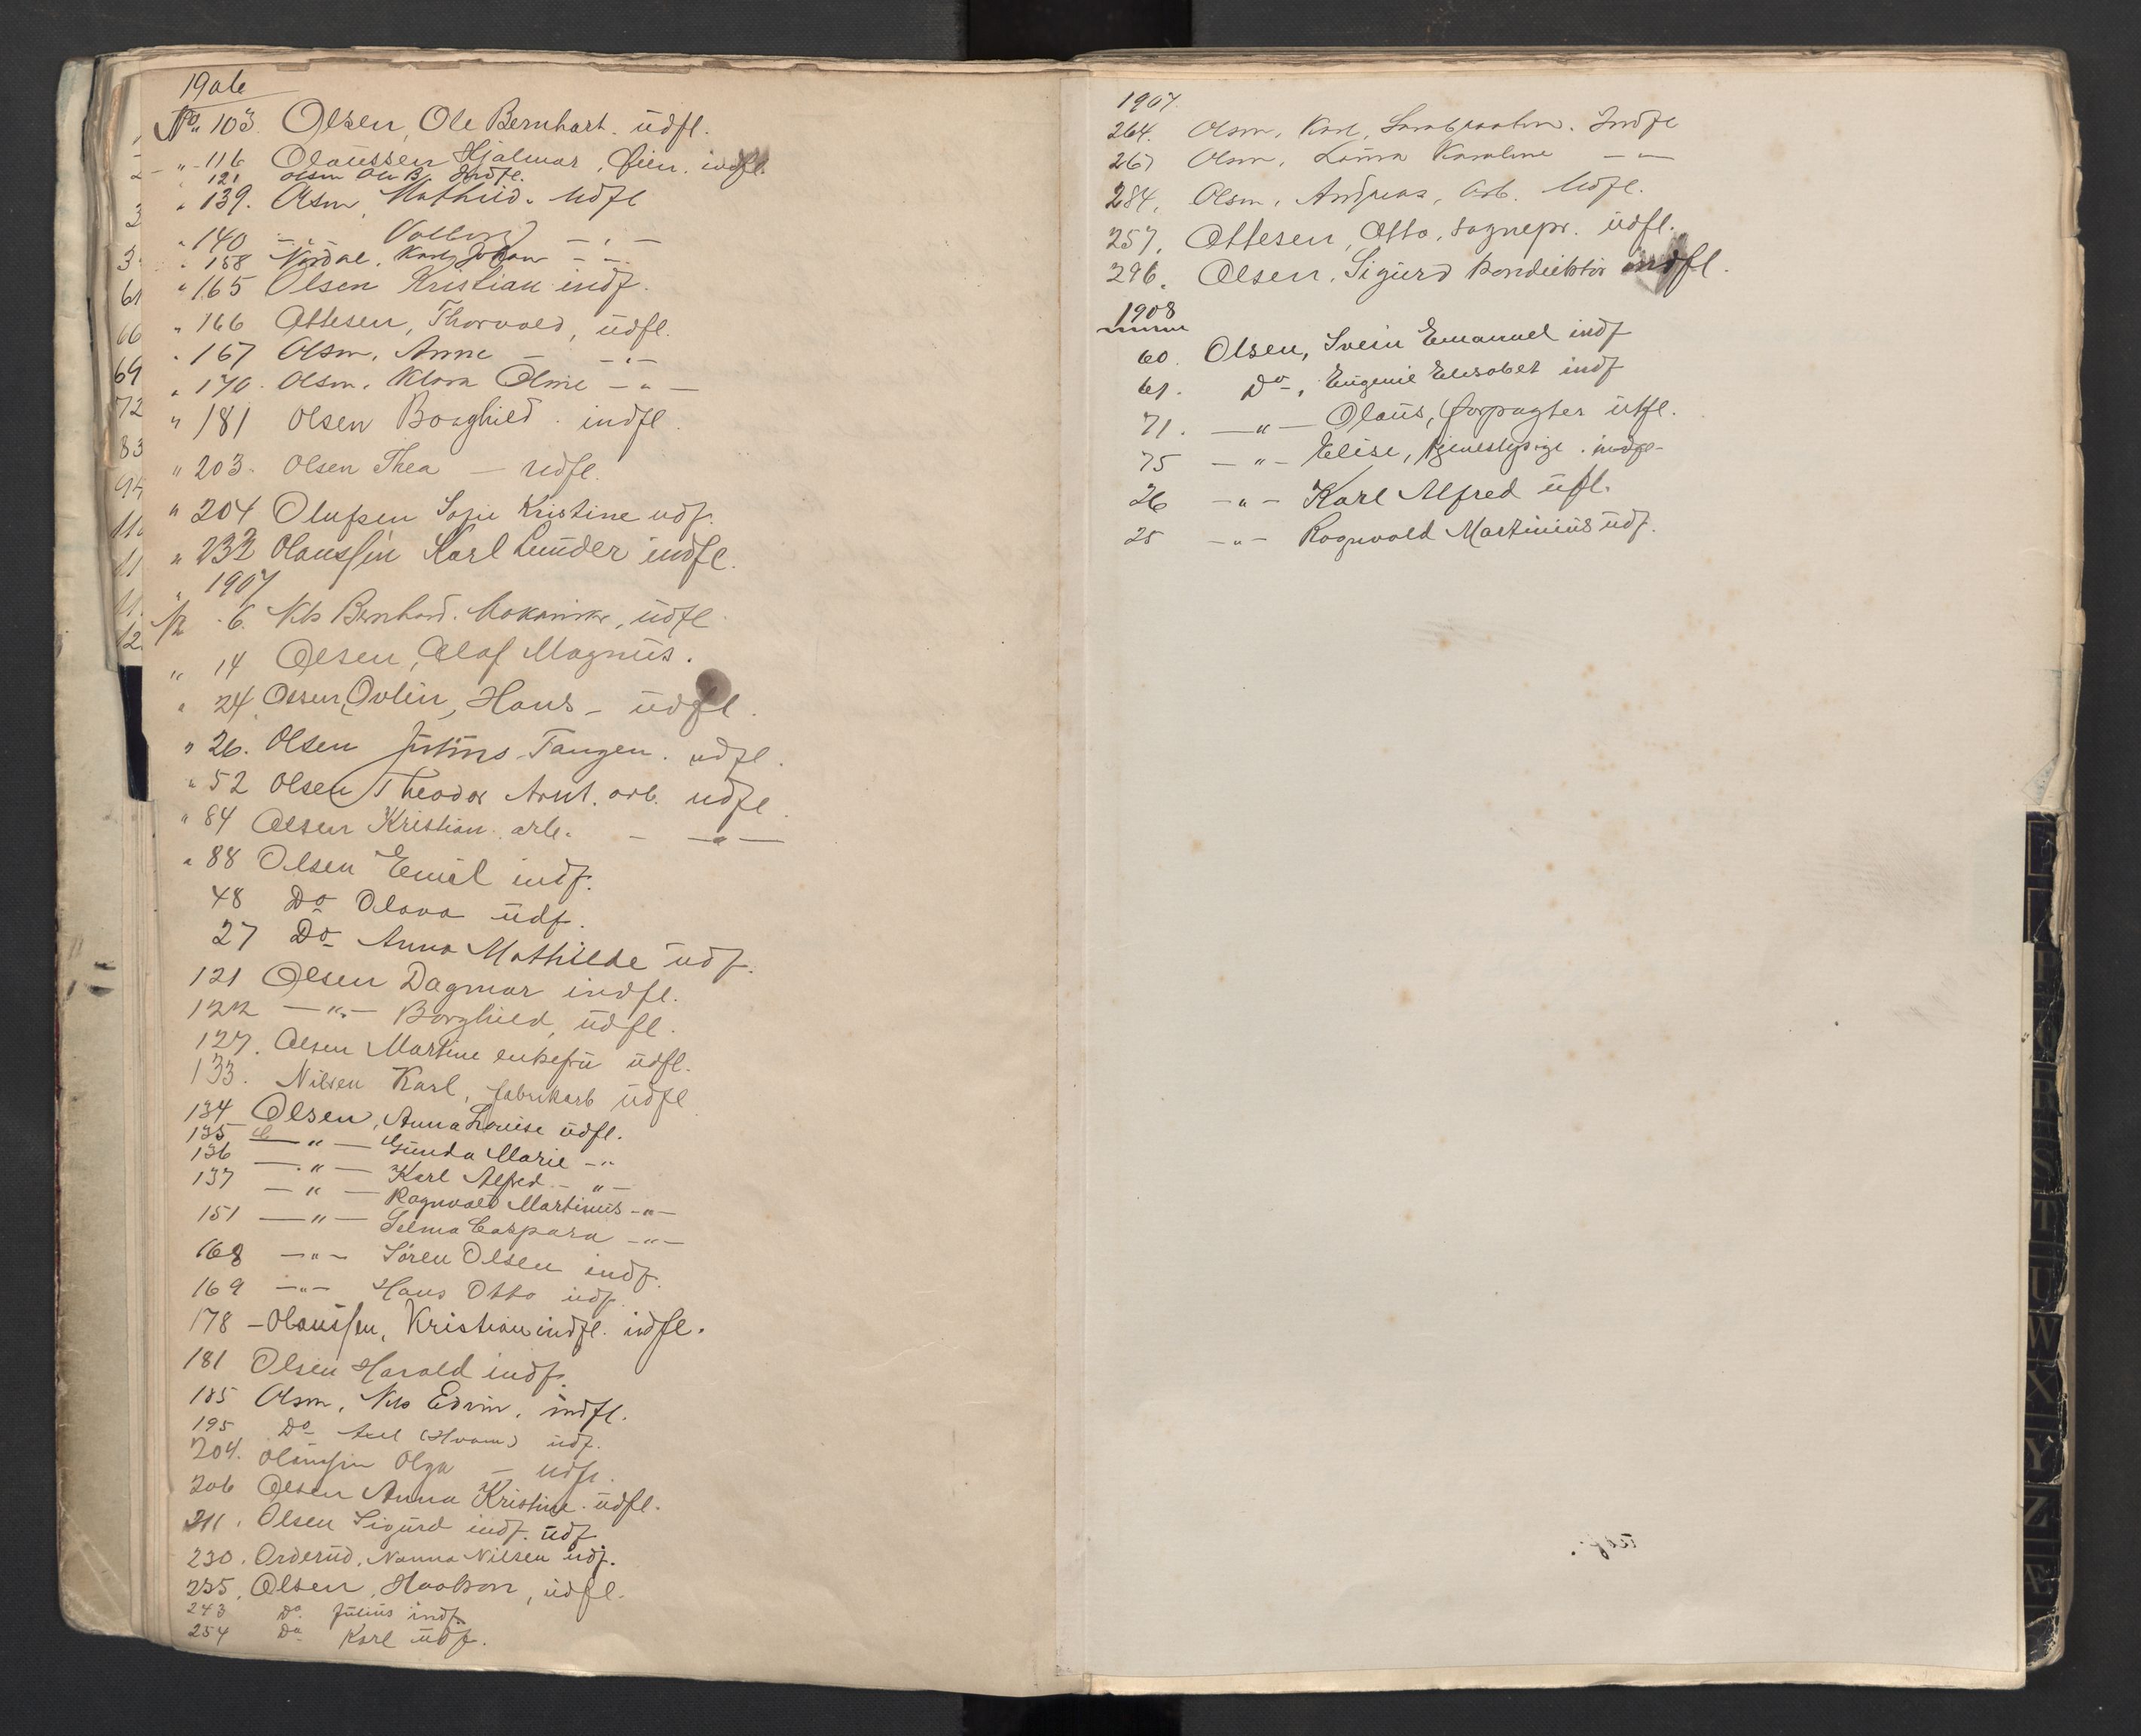 1906
No. 103. Olsen, Ole Bernhart. udfl.
" 116 Olaussen Hjalmar, indfl.
" 121 Olsen Ole B. Indfl.
" 139. Olsen, Mathild. Udfl
" 140 — " — — " —
" 158 Nordal, Karl Johan — " —
" 165 Olsen Kristian indf.
" 166 Ottesen, Thorvald, udfl.
" 167 Olsen, Anne — — " —
" 170. Olsen, Klara Oline — " —
" 181 Olsen Borghild. indfl.
" 203. Olsen Thea — udfl.
" 204 Olufsen Sofie Kristine udf.
" 232 Olaussen Karl Lunder indfl.
" 1907
No 6. Nils Bernhard. Mekaniker, udfl
" 14 Olsen, Olaf Magnus.
" 24 Olsen, Ovlin, Hans — udfl.
" 26. Olsen Julius Tangen. udfl.
" 52 Olsen Theodor Arnt. arb. udfl.
" 84 Olsen Kristian. arb. — — " —
" 88 Olsen Emil indf.
48 Do Olava udf.
27 Do Anna Mathilde udf.
121 Olsen Dagmar indfl.
122 — " — Borghild, udfl.
127. Olsen Martine enkefru udfl.
133. Nilsen Karl, fabrikarb udfl
134 Olsen, Anna Louise udfl.
135 — " — Gunda Marie — " 
136 — " — Karl Alfred — " —
137 — " — Ragnvald Martinius — " —
151 — " — Selma Caspara — " —
168 — " — Sören Olsen indf.
169 — " — Hans Otto indf.
178 — Olaussen, Kristian indfl. indfl.
181 Olsen Harald indf.
185 Olsen, Nils Edvin, indfl.
195 Do Axel (Hvam) udf.
204. Olaussen Olga — udfl.
206 Olsen Anna Kristine. udfl.
211. Olsen Sigurd indf. udf
230. Orderud, Nanna Nilsen udf.
235. Olsen, Haakon, udfl.
243 Do. Julius indf.
254 Do Karl udf.
1907.
264. Olsen, Karl, Indfl
267 Olsen, Laura Karoline — " —
284. Olsen, Andreas, Arb. Udfl.
257. Ottesen, Otto, sognepr. udfl.
296. Olsen, Sigurd konduktör indfl.
1908
60. Olsen, Svein Emanuel indf
61. Do, Eugenie Elisabet indf
71. — " — Olaus, forpagter utfl.
75 — " — Elise, tjenestepige. indfl.
26 — " — Karl Alfred utfl.
25 — " — Ragnvald Martinius udf.